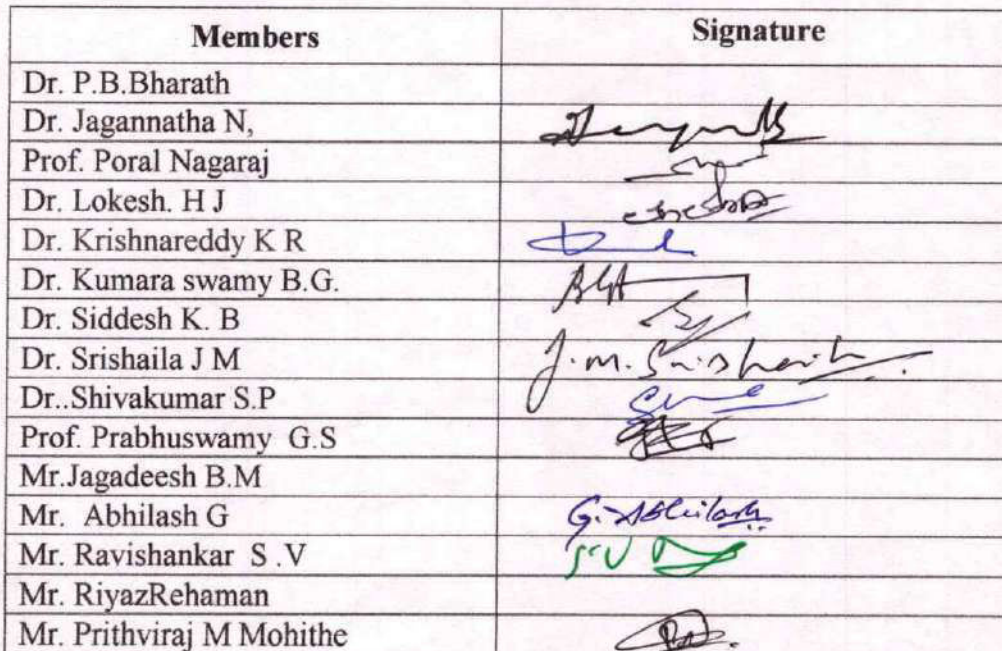 Members Signature
Dr. P.B.Bharath
Dr. Jagannatha N,
Prof. Poral Nagaraj
Dr. Lokesh. H J
Dr. Krishnareddy K R
Dr. Kumara swamy B.G.
Dr. Siddesh K. B
Dr. Srishaila J M J.M.Srishaila
Dr..Shivakumar S.P
Prof. Prabhuswamy G.S
Mr.Jagadeesh B.M
Mr. Abhilash G G.Abhilash
Mr. Ravishankar S .V
Mr. RiyazRehaman
Mr. Prithviraj M Mohithe